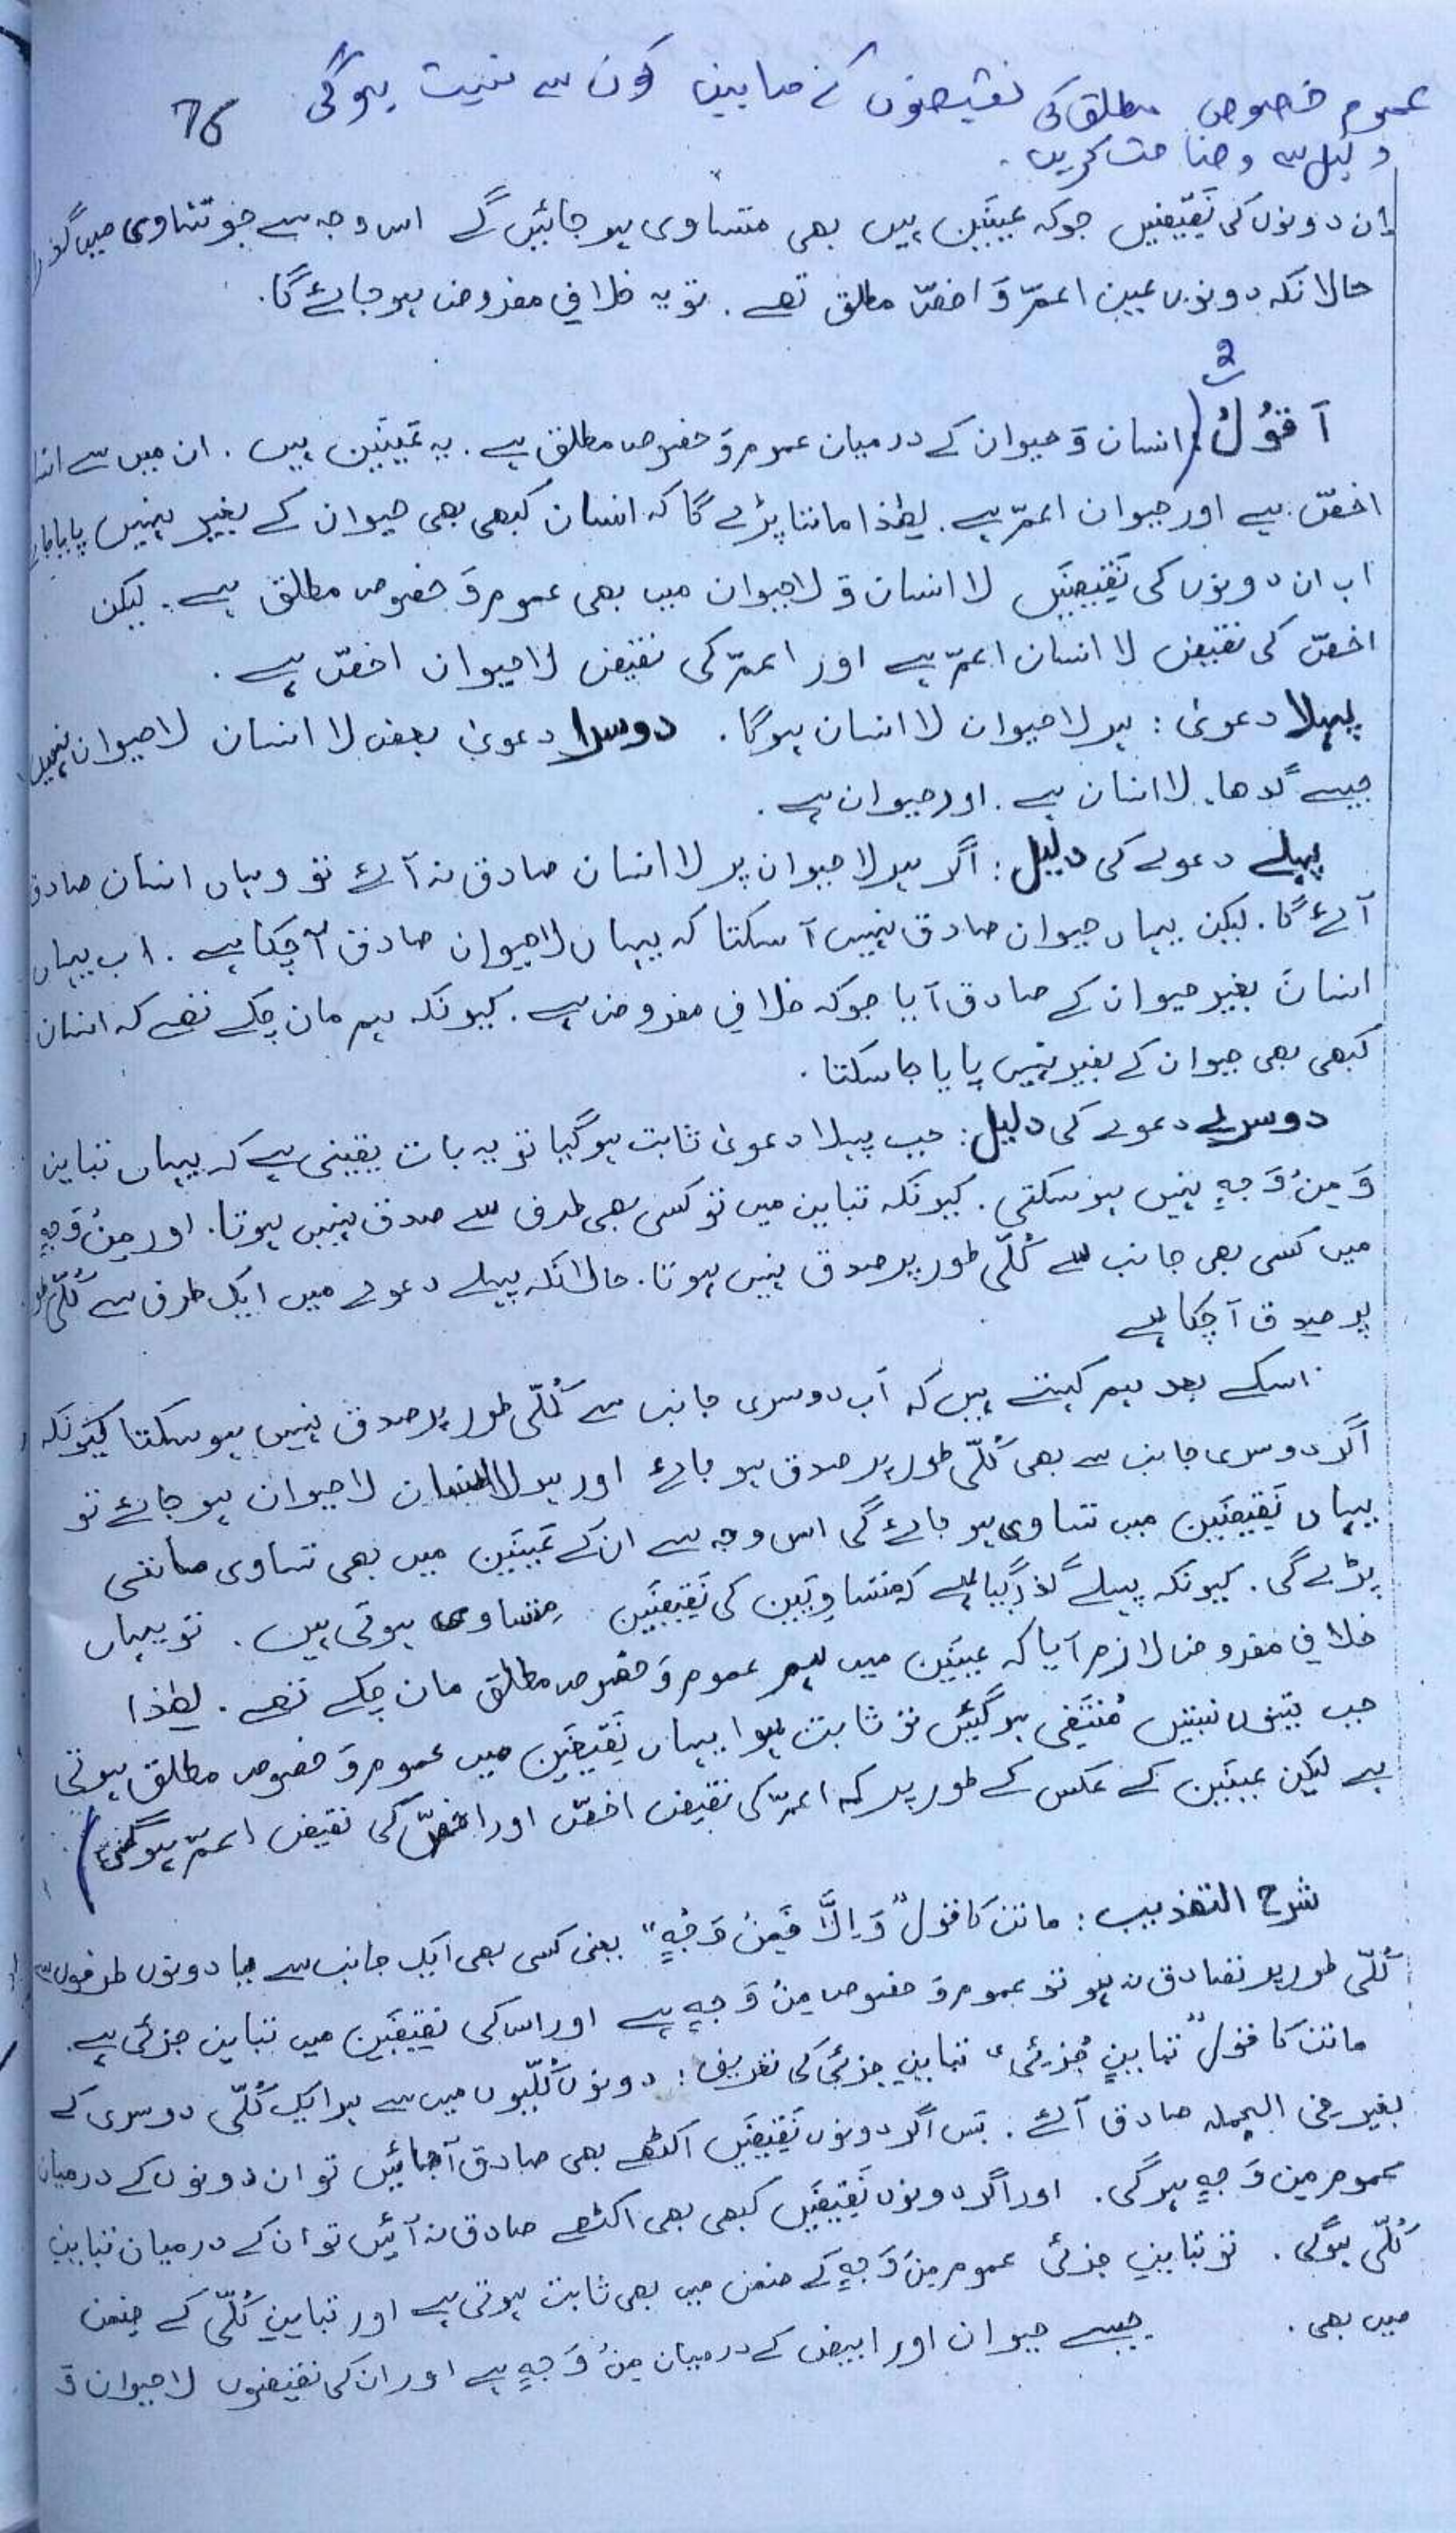 عموم خصوص مطلق کی نقیضوں کے مابین کون سے نسبت ہوگی
76
دلیل سے وضاحت کریں۔
اِن دونوں کی نَقِیْضَیْں جوکہ عَیْنَیْن ہیں بھی متساوی ہو جائیں گے اس وجہ سے جو تَسَاوی میں گذر
حالانکہ دونوں عین اعمّ وَ اخصّ مطلق تھے۔ تو یہ خلافِ مفروض ہو جائے گا۔
2
اَقُوْلُ: (انسان وَ حیوان کے درمیان عموم وَ خصوص مطلق ہے۔ یہ عَیْنَیْن ہیں۔ ان میں سے
اخصّ ہے اور حیوان اعمّ ہے۔ لھٰذا ماننا پڑے گا کہ انسان کبھی بھی حیوان کے بغیر نہیں پایا جا
اب ان دونوں کی نَقِیْضَیْں لا انسان وَ لاحیوان میں بھی عموم وَ خصوص مطلق ہے۔ لیکن
اخصّ کی نقیض لا انسان اعمّ ہے اور اعمّ کی نقیض لاحیوان اخصّ ہے۔
پہلا دعویٰ: ہر لاحیوان لا انسان ہوگا۔ دوسرا دعویٰ بعض لا انسان لاحیوان نہیں
جیسے گدھا۔ لا انسان ہے۔ اور حیوان ہے۔
پہلے دعوے کی دلیل: اگر ہر لاحیوان پر لا انسان صادق نہ آئے تو وہاں انسان صادق
آئے گا۔ لیکن یہاں حیوان صادق نہیں آ سکتا کہ یہاں لاحیوان صادق آ چکا ہے۔ اب یہاں
انسان بغیر حیوان کے صادق آیا جوکہ خلافِ مفروض ہے۔ کیونکہ ہم مان چکے تھے کہ انسان
کبھی بھی حیوان کے بغیر نہیں پایا جا سکتا۔
دوسرے دعوے کی دلیل: جب پہلا دعویٰ ثابت ہو گیا تو یہ بات یقینی ہے کہ یہاں تباین
وَ مِنْ وَجہٍ نہیں ہو سکتی۔ کیونکہ تباین میں تو کسی بھی طرف سے صدق نہیں ہوتا۔ اور مِنْ وَجہٍ
میں کسی بھی جانب سے کُلّی طور پر صدق نہیں ہوتا۔ حالانکہ پہلے دعوے میں ایک طرف سے کُلّی طور
پر صدق آ چکا ہے
اسکے بعد ہم کہتے ہیں کہ اَب دوسری جانب سے کُلّی طور پر صدق نہیں ہو سکتا کیونکہ
اگر دوسری جانب سے بھی کُلّی طور پر صدق ہو جائے اور ہر لا انسان لاحیوان ہو جائے تو
یہاں نَقِیْضَیْن میں تساوی ہو جائے گی اس وجہ سے ان کے عَیْنَیْن میں بھی تساوی ماننی
پڑے گی۔ کیونکہ پہلے گذر گیا ہے کہ متساوِیَیْن کی نَقِیْضَیْن متساوی ہوتی ہیں۔ تو یہاں
خلافِ مفروض لازم آیا کہ عَیْنَیْن میں ہم عموم وَ خصوص مطلق مان چکے تھے۔ لھٰذا
جب تینوں نسبتیں مُنْتَفی ہو گئیں تو ثابت ہوا یہاں نَقِیْضَیْن میں عموم وَ خصوص مطلق ہوتی
ہے لیکن عَیْنَیْن کے عکس کے طور پر کہ اعمّ کی نقیض اخصّ اور اخصّ کی نقیض اعمّ ہوگئی)
شرح التھذیب: ماتن کا قول "وَ اِلَّا فَمِنْ وَجْہٍ" یعنی کسی بھی ایک جانب سے یا دونوں طرفوں سے
کُلّی طور پر تصادق نہ ہو تو عموم وَ خصوص مِنْ وَجہٍ ہے اور اس کی نَقِیْضَیْن میں تباین جزئی ہے۔
ماتن کا قول "تباینٍ جُزئی" تباینِ جزئی کی تعریف: دونوں کُلّیوں میں سے ہر ایک کُلّی دوسری کے
بغیر فی الجملہ صادق آئے۔ بَس اگر دونوں نَقِیْضَیْں اکٹھے بھی صادق آجائیں تو ان دونوں کے درمیان
عموم مِن وَجہٍ ہوگی۔ اور اگر دونوں نَقِیْضَیْں کبھی بھی اکٹھے صادق نہ آئیں تو ان کے درمیان تباین
کُلّی ہوگی۔ تو تباینِ جزئی عموم مِنْ وَجہٍ کے ضمن میں بھی ثابت ہوتی ہے اور تباینِ کُلّی کے ضمن
میں بھی۔ جیسے حیوان اور ابیض کے درمیان مِنْ وَجہٍ ہے اور ان کی نقیضوں لاحیوان وَ